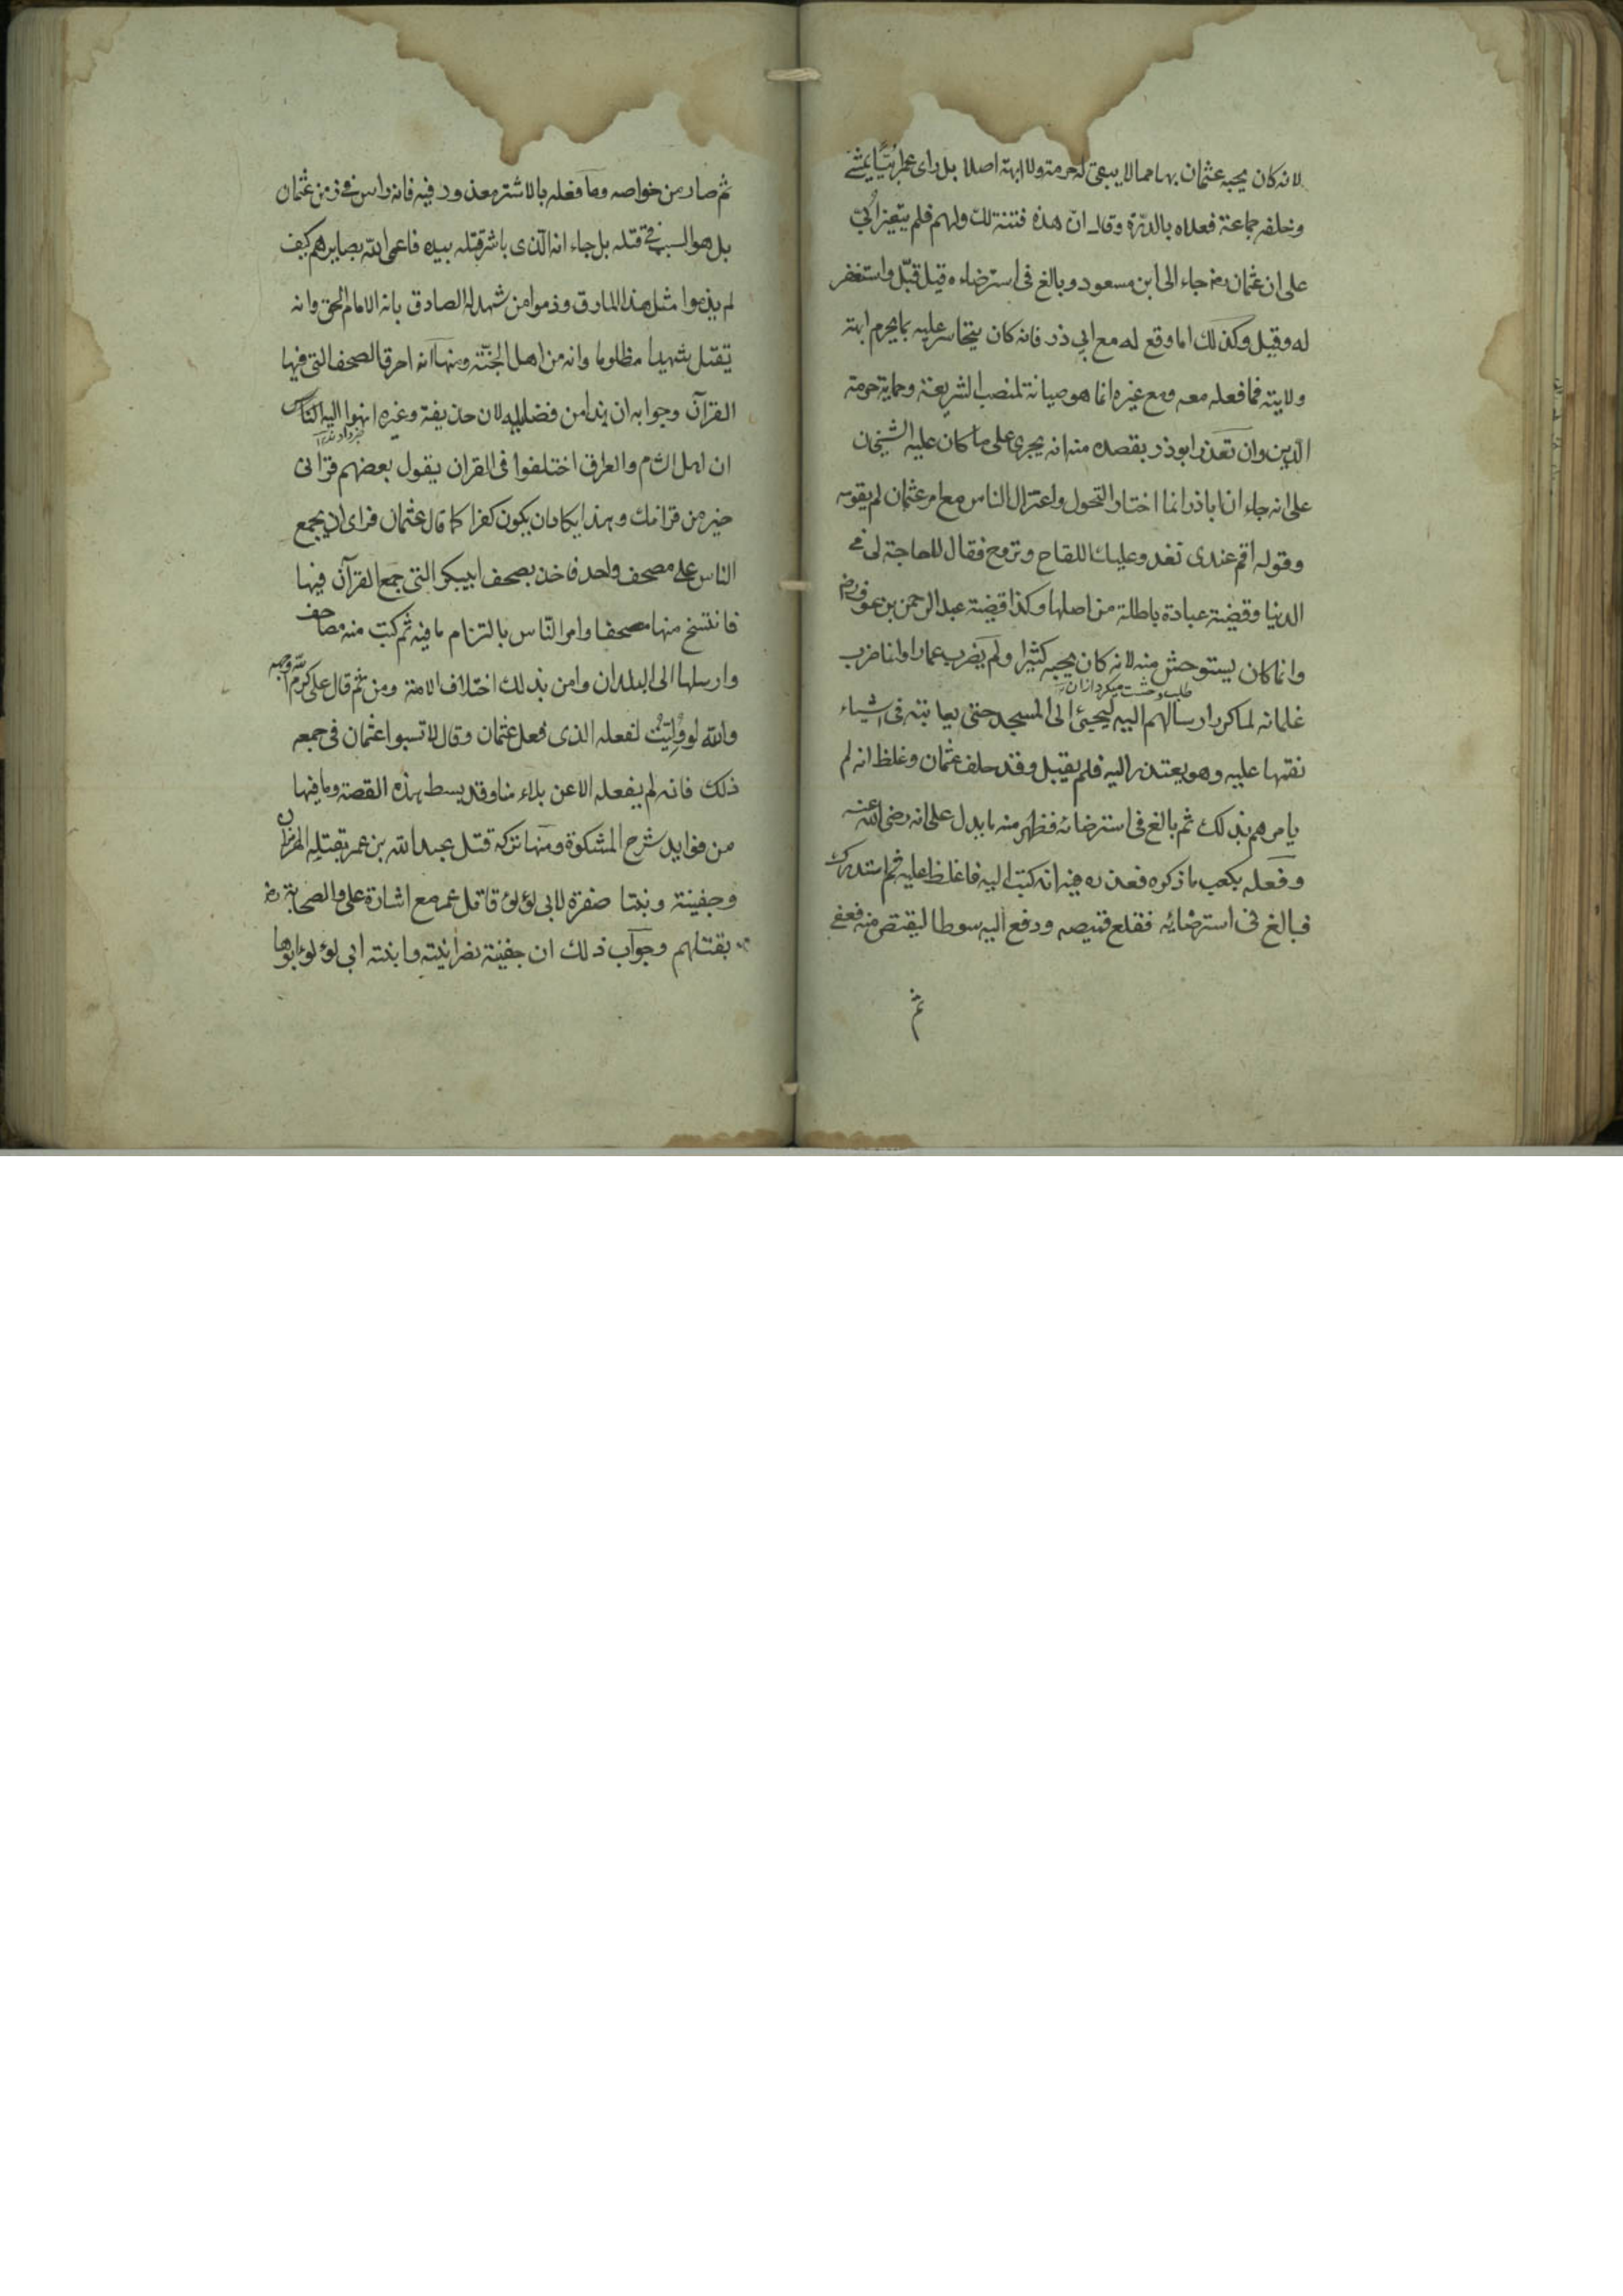 لانه كان يجيبه عثمان بها مما لا يبقى له حرمة ولا ابهة اصلا بل راى عمر ابيّا يمشى
وخلفه جماعة فعلاه بالدرّة وقال انّ هذه فتنة لك ولهم فلم يتغير ابيّ
على ان عثمان رضـ جاء الى ابن مسعود وبالغ فى استرضاءه قيل قبّل واستغفر
له وقيل وكذلك اما وقع له مع ابي ذر فانه كان يتجاسر عليه بما يحرم ابهة
ولايته فما فعله معه ومع غيره انما هو صيانة لمنصب الشريعة وحماية حرمة
الدّين وان تعذر ابو ذر بقصده منه انه يجرى على ما كان عليه الشيخان
على انه جاء ان اباذر انما اختار التحول واعتزال الناس مع امر عثمان له بقوله
وقوله اقم عندى تغدو عليك اللقاح وتروح فقال لا حاجة لى فى
الدنيا وقضية عبادة باطلة من اصلها وكذا قضية عبد الرحمن بن عوف رضـ
وانما كان يستوحش منه لانه كان يجيبه كثيرا ولم يضرب عمارا وانما ضرب
طلب وحشت ميكرد ازان
غلمانه لما كرر ارسالهم اليه ليجيئ الى المسجد حتى يعاتبه فى اشياء
نقمها عليه وهو يعتذر اليه فلم يقبل وقد حلف عثمان وغلظ انه لم
يامرهم بذلك ثم بالغ فى استرضائه فظهر منه ما يدل على انه رضى الله عنه
وفعله بكعب ما ذكره فعذره فيه انه كتب اليه فاغلظ عليه ثم استدرك
فبالغ فى استرضائه فقلع قميصه ودفع اليه سوطا ليقتص منه فعفى
ثم
ثم صار من خواصه وما فعله بالاشتر معذور فيه فانه راس فى زمن عثمان
بل هو السبب فى قتله بل جاء انه الذى باشر قتله بيده فاعمى الله بصايرهم كيف
لم يذموا مثل هذا المارق وذموا من شهد له الصادق بانه الامام الحق وانه
يقتل شهيدا مظلوما وانه من اهل الجنّة ومنها انه احرق الصحف التى فيها
القرآن وجوابه ان هذا من فضايله لان حذيفة وغيره انهوا اليه الناس
ان اهل الشام والعراق اختلفوا فى القران يقول بعضهم قرانى
خير من قرانك وهذا يكاد ان يكون كفرا كما قال عثمان فراى ان يجمع
الناس على مصحف واحد فاخذ بصحف ابيبكر التى جمع القرآن فيها
فانتسخ منها مصحفا وامر النّاس بالتزام ما فيه ثم كتب منه مصاحف
وارسلها الى البلدان وامن بذلك اختلاف الامة ومن ثم قال على كرم الله وجهه
والله لو وُلّيتُ لفعله الذى فعل عثمان وقال لا تسبوا عثمان فى جمعه
ذلك فانه لم يفعله الا عن بلاء منا وقد بسط هذه القصة وما فيها
من فوايد شرح المشكوة ومنها تركه قتل عبيد الله بن عمر بقتله الهرمزان
وجفينة وبنتا صغرة لابى لؤلؤ قاتل عمر مع اشارة على والصحابة رضـ
بقتلهم وجواب ذلك ان جفينة نصرانية وابنة ابى لؤلؤ ابوها